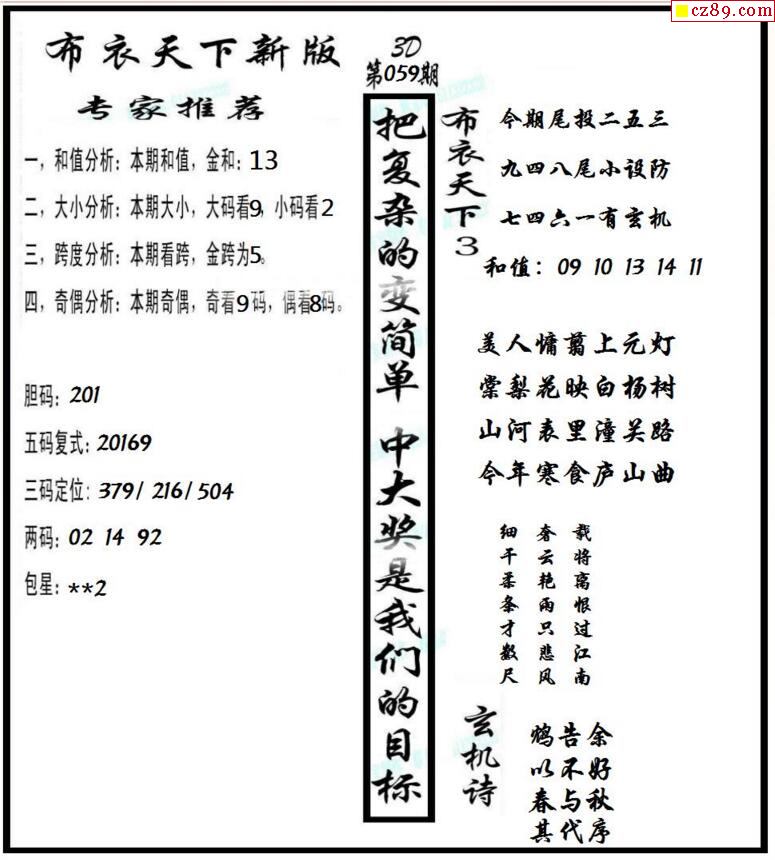 cz89.com
布衣天下新版
专家推荐
一，和值分析：本期和值，金和：13
二，大小分析：本期大小，大码看9，小码看2
三，跨度分析：本期看跨，金跨为5。
四，奇偶分析：本期奇偶，奇看9码，偶看8码。
胆码：201
五码复式：20169
三码定位：379/ 216/ 504
两码：02 14 92
包星：**2
3D
第059期
把复杂的变简单 中大奖是我们的目标
布衣天下3
今期尾投二五三
九四八尾小设防
七四六一有玄机
和值：09 10 13 14 11
美人慵翦上元灯
棠梨花映白杨树
山河表里潼关路
今年寒食庐山曲
细干柔条才数尺
奢云艳雨只悲风
载将离恨过江南
玄机诗
鸩告余
以不好
春与秋
其代序